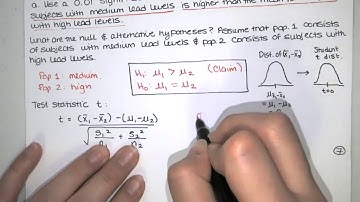 a. Use a 0.01 signif
subjects with medium lead levels is higher than the mean
with high lead levels.
What are the null & alternative hypotheses? Assume that pop. 1 consists
of subjects with medium lead levels & pop. 2 consists of subjects with
high lead levels.
Pop 1: medium
Pop 2: high
H₁: μ₁ > μ₂ (Claim)
H₀: μ₁ = μ₂
Dist. of (x̄₁-x̄₂)
Student
t dist.
μx̄₁-x̄₂
= μ₁-μ₂
t=0
Test Statistic t:
t = (x̄₁-x̄₂) -(μ₁-μ₂)
√ s₁²/n₁ + s₂²/n₂
7